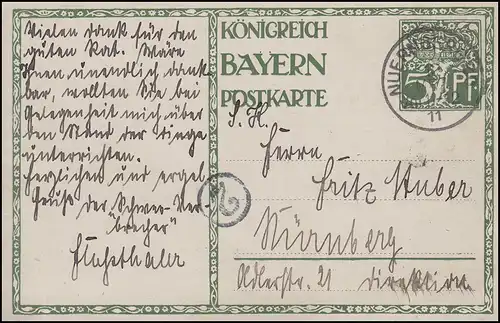 Vielen Dank für den
guten Rat. Wäre
Ihnen unendlich dank
bar, wollten Sie bei
Gelegenheit mich über
den Stand der Dinge
unterrichten.
Herzlichen und ergeb.
Grüße der "Schwer-Ver-
brecher"
KÖNIGREICH
BAYERN
POSTKARTE
5 Pf
NUERNBERG
11
S. H.
Herrn
Fritz Huber
Nürnberg
Adlerstr. 21